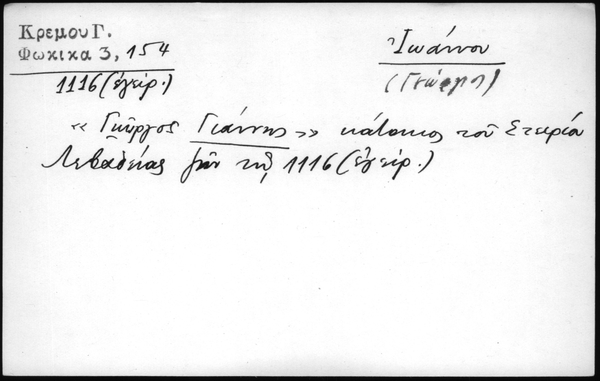 Κρεμου Γ.
Φωκικα 3, 154
1116 (ἐγείρ.)
Ἰωάννου
(Γεώργη)
« Γιῶργος Γιάννης » κάτοικος τοῦ Στειρίου
Λεβαδείας τῇ 1116 (ἐγείρ.)